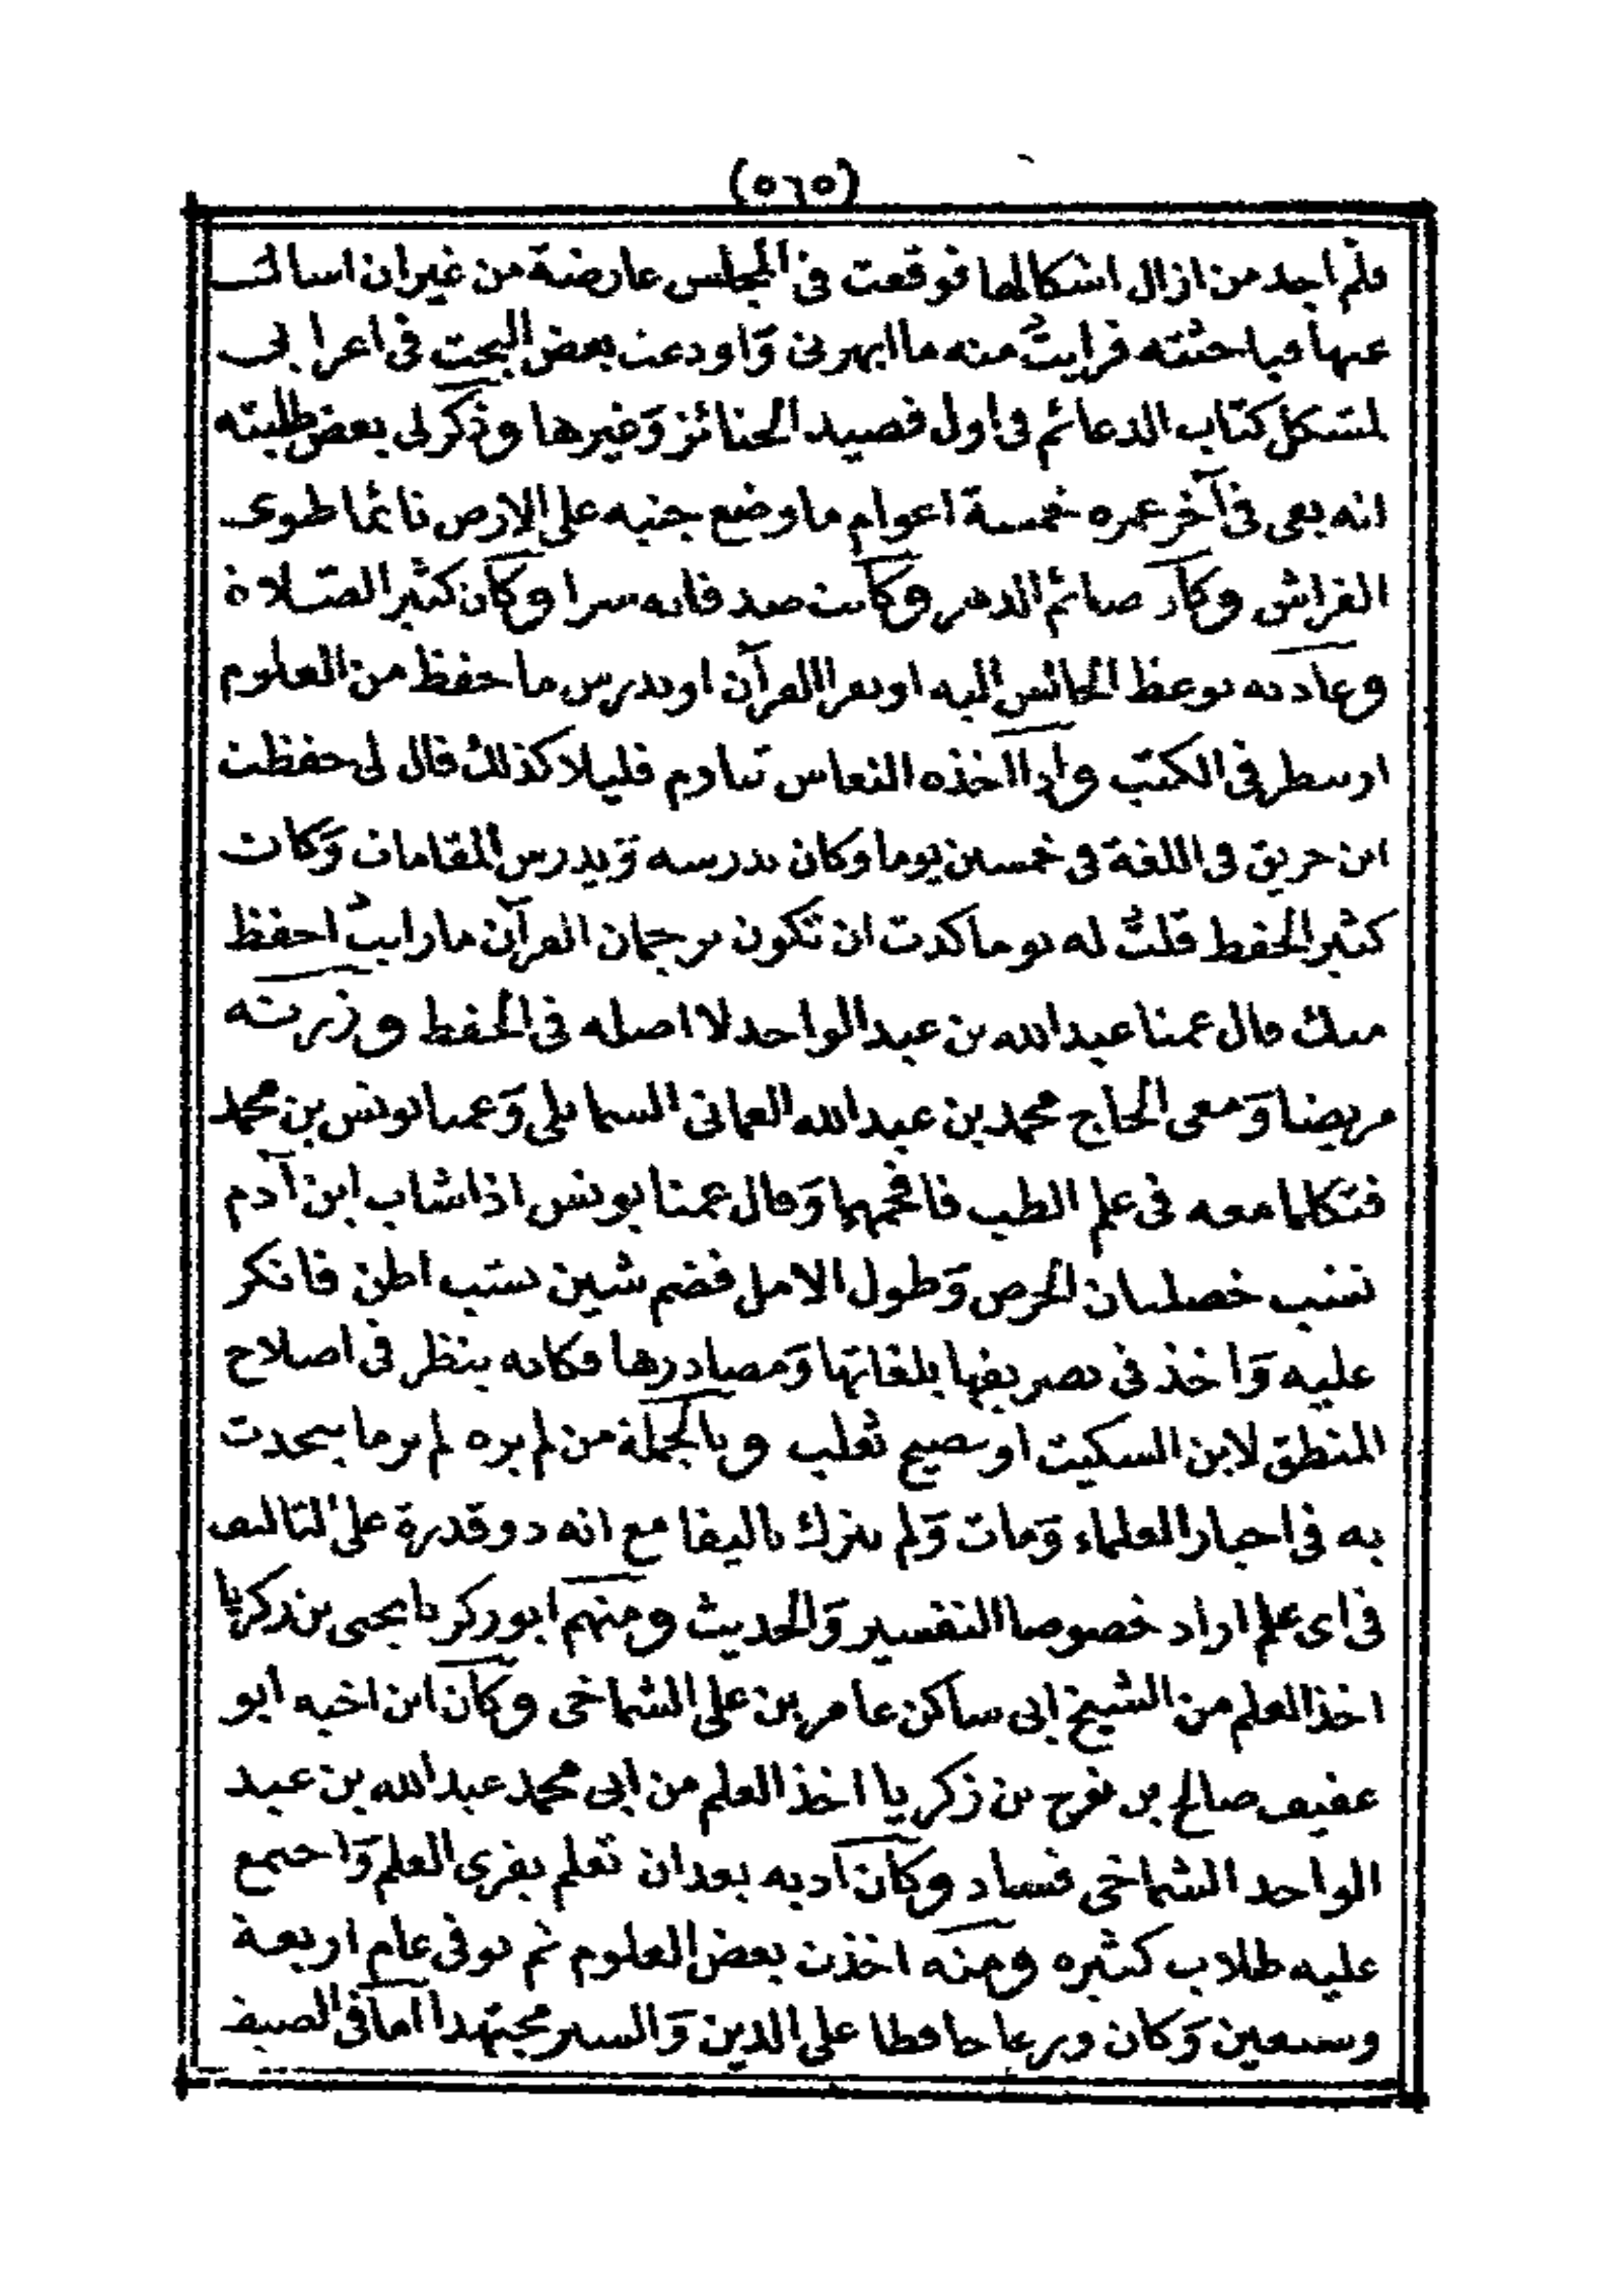 (٥٦٥)
فلم اجد من ازال اشكالها فوقعت فى المجلس عارضة من غير ان اسالك
عنها فباحثته فرايت منه ما ابهرنى وَاودعت بعض البحث فى اعرابى
لمشكل كتاب الدعائم فى اول قصيد الجنائز وَغيرها وذكر لى بعض طلبته
انه بقى فى آخر عمره خمسة اعوام ما وضع جنبه على الارض نائما طوى
الفراش وكان صائم الدهر وكانت صدقاته سرا وكان كثير الصّلاة
وعادته يوعظ الجالس اليه او يقرا القرآن او يدرس ما حفظ من العلوم
او ينظر فى الكتب واذا اخذه النعاس تناوم قليلا كذلك قال لى حفظت
ابن حريق فى اللغة فى خمسين يوما وكان يدرسه وَيدرس المقامات وَكان
كثير الحفظ قلت له يوما كدت ان تكون ترجمان القرآن ما رايت احفظ
منك قال عمنا عبد الله بن عبد الواحد لا اصله فى الحفظ وزرته
مريضا وَمعى الحاج محمد بن عبد الله العمانى السمايلى وَعمنا يونس بن محمد
فتكلما معه فى علم الطب فافحمهما وَقال عمنا يونس اذا شاب ابن آدم
تشب خصلتان الحرص وَطول الامل فضم شين تشب اظن فانكر
عليه وَاخذ فى تصريفها بلغاتها وَمصادرها فكانه ينظر فى اصلاح
المنطق لابن السكيت او فصيح ثعلب وبالجملة من لم يره لم ير ما يتحدث
به فى اخبار العلماء وَمات وَلم يترك تاليفا مع انه ذو قدرة على التاليف
فى اى علم اراد خصوصا التفسير وَالحديث ومنهم ابو زكريا يحيى بن زكريا
اخذ العلم من الشيخ ابى ساكن عامر بن على الشماخى وكان ابن اخيه ابو
عفيف صالح بن نوح بن زكريا اخذ العلم من ابى محمد عبد الله بن عبد
الواحد الشماخى فساد وكان ادبه بعد ان تعلم يقرى العلم وَاجتمع
عليه طلاب كثيره ومنه اخذت بعض العلوم ثم توفى عام اربعة
وسبعين وَكان ورعا حافظا على الدين وَالسير مجتهدا اما فى الصيف